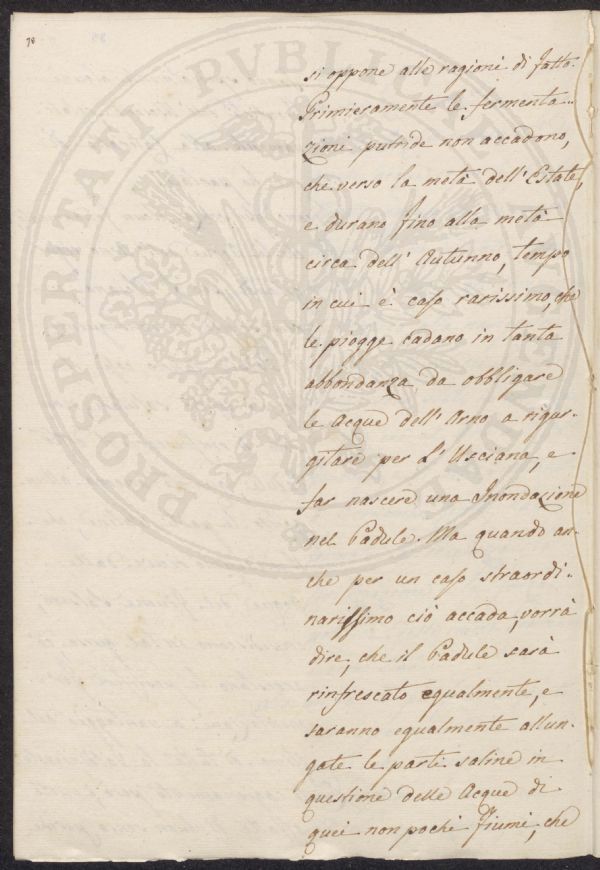 78
si oppone alle ragioni di fatto.
Primieramente le fermenta..
zioni putride non accadono,
che verso la metà dell' Estate,
e durano fino alla metà
circa dell' Autunno, tempo
in cui è caso rarissimo, che
le piogge cadano in tanta
abbondanza da obbligare
le Acque dell' Arno a rigur-
gitare per l' Usciana, e
far nascere una Inondazione
nel Padule. Ma quando an-
che per un caso straordi..
narissimo ciò accada, vorrà
dire, che il Padule sarà
rinfrescato egualmente, e
saranno egualmente allun-
gate le parti saline in
questione delle Acque di
quei non pochi Fiumi, che
PROSPERITATI PVBLICAE AVGENDAE